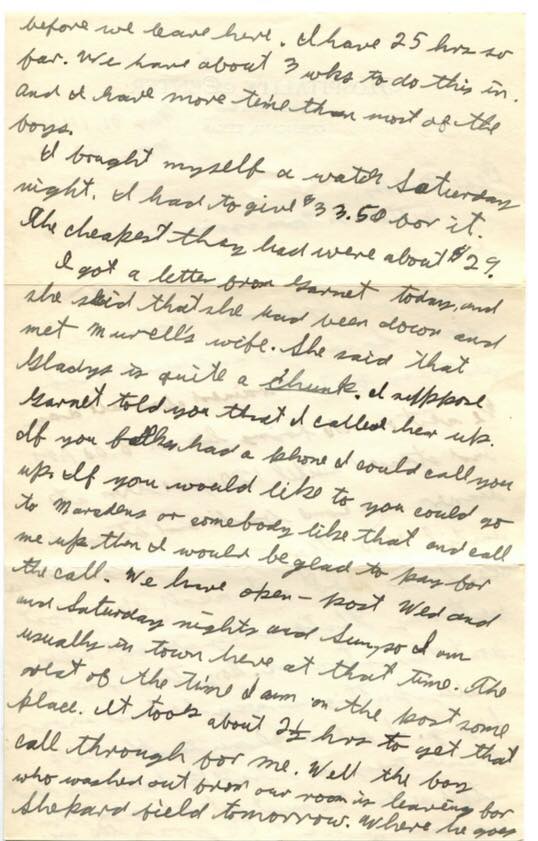 before we leave here. I have 25 hrs so
far. We have about 3 wks to do this in.
and I have more time than most of the
boys.
I bought myself a watch Saturday
night. I had to give $33.50 for it.
The cheapest they had were about $29.
I got a letter from Garnet today, and
she said that she had been down and
met Murell's wife. She said that
Gladys is quite a chunk. I suppose
Garnet told you that I called her up.
If you folks had a phone I could call you
up. If you would like to you could go
to Marsdens or somebody like that and call
me up then I would be glad to pay for
the call. We have open-post Wed and
and Saturday nights and Sun, so I am
usually in town here at that time. The
rest of the time I am on the post some
place. It took about 2½ hrs to get that
call through for me. Well the boy
who washed out from our room is leaving for
Shepard field tomorrow. Where he goes